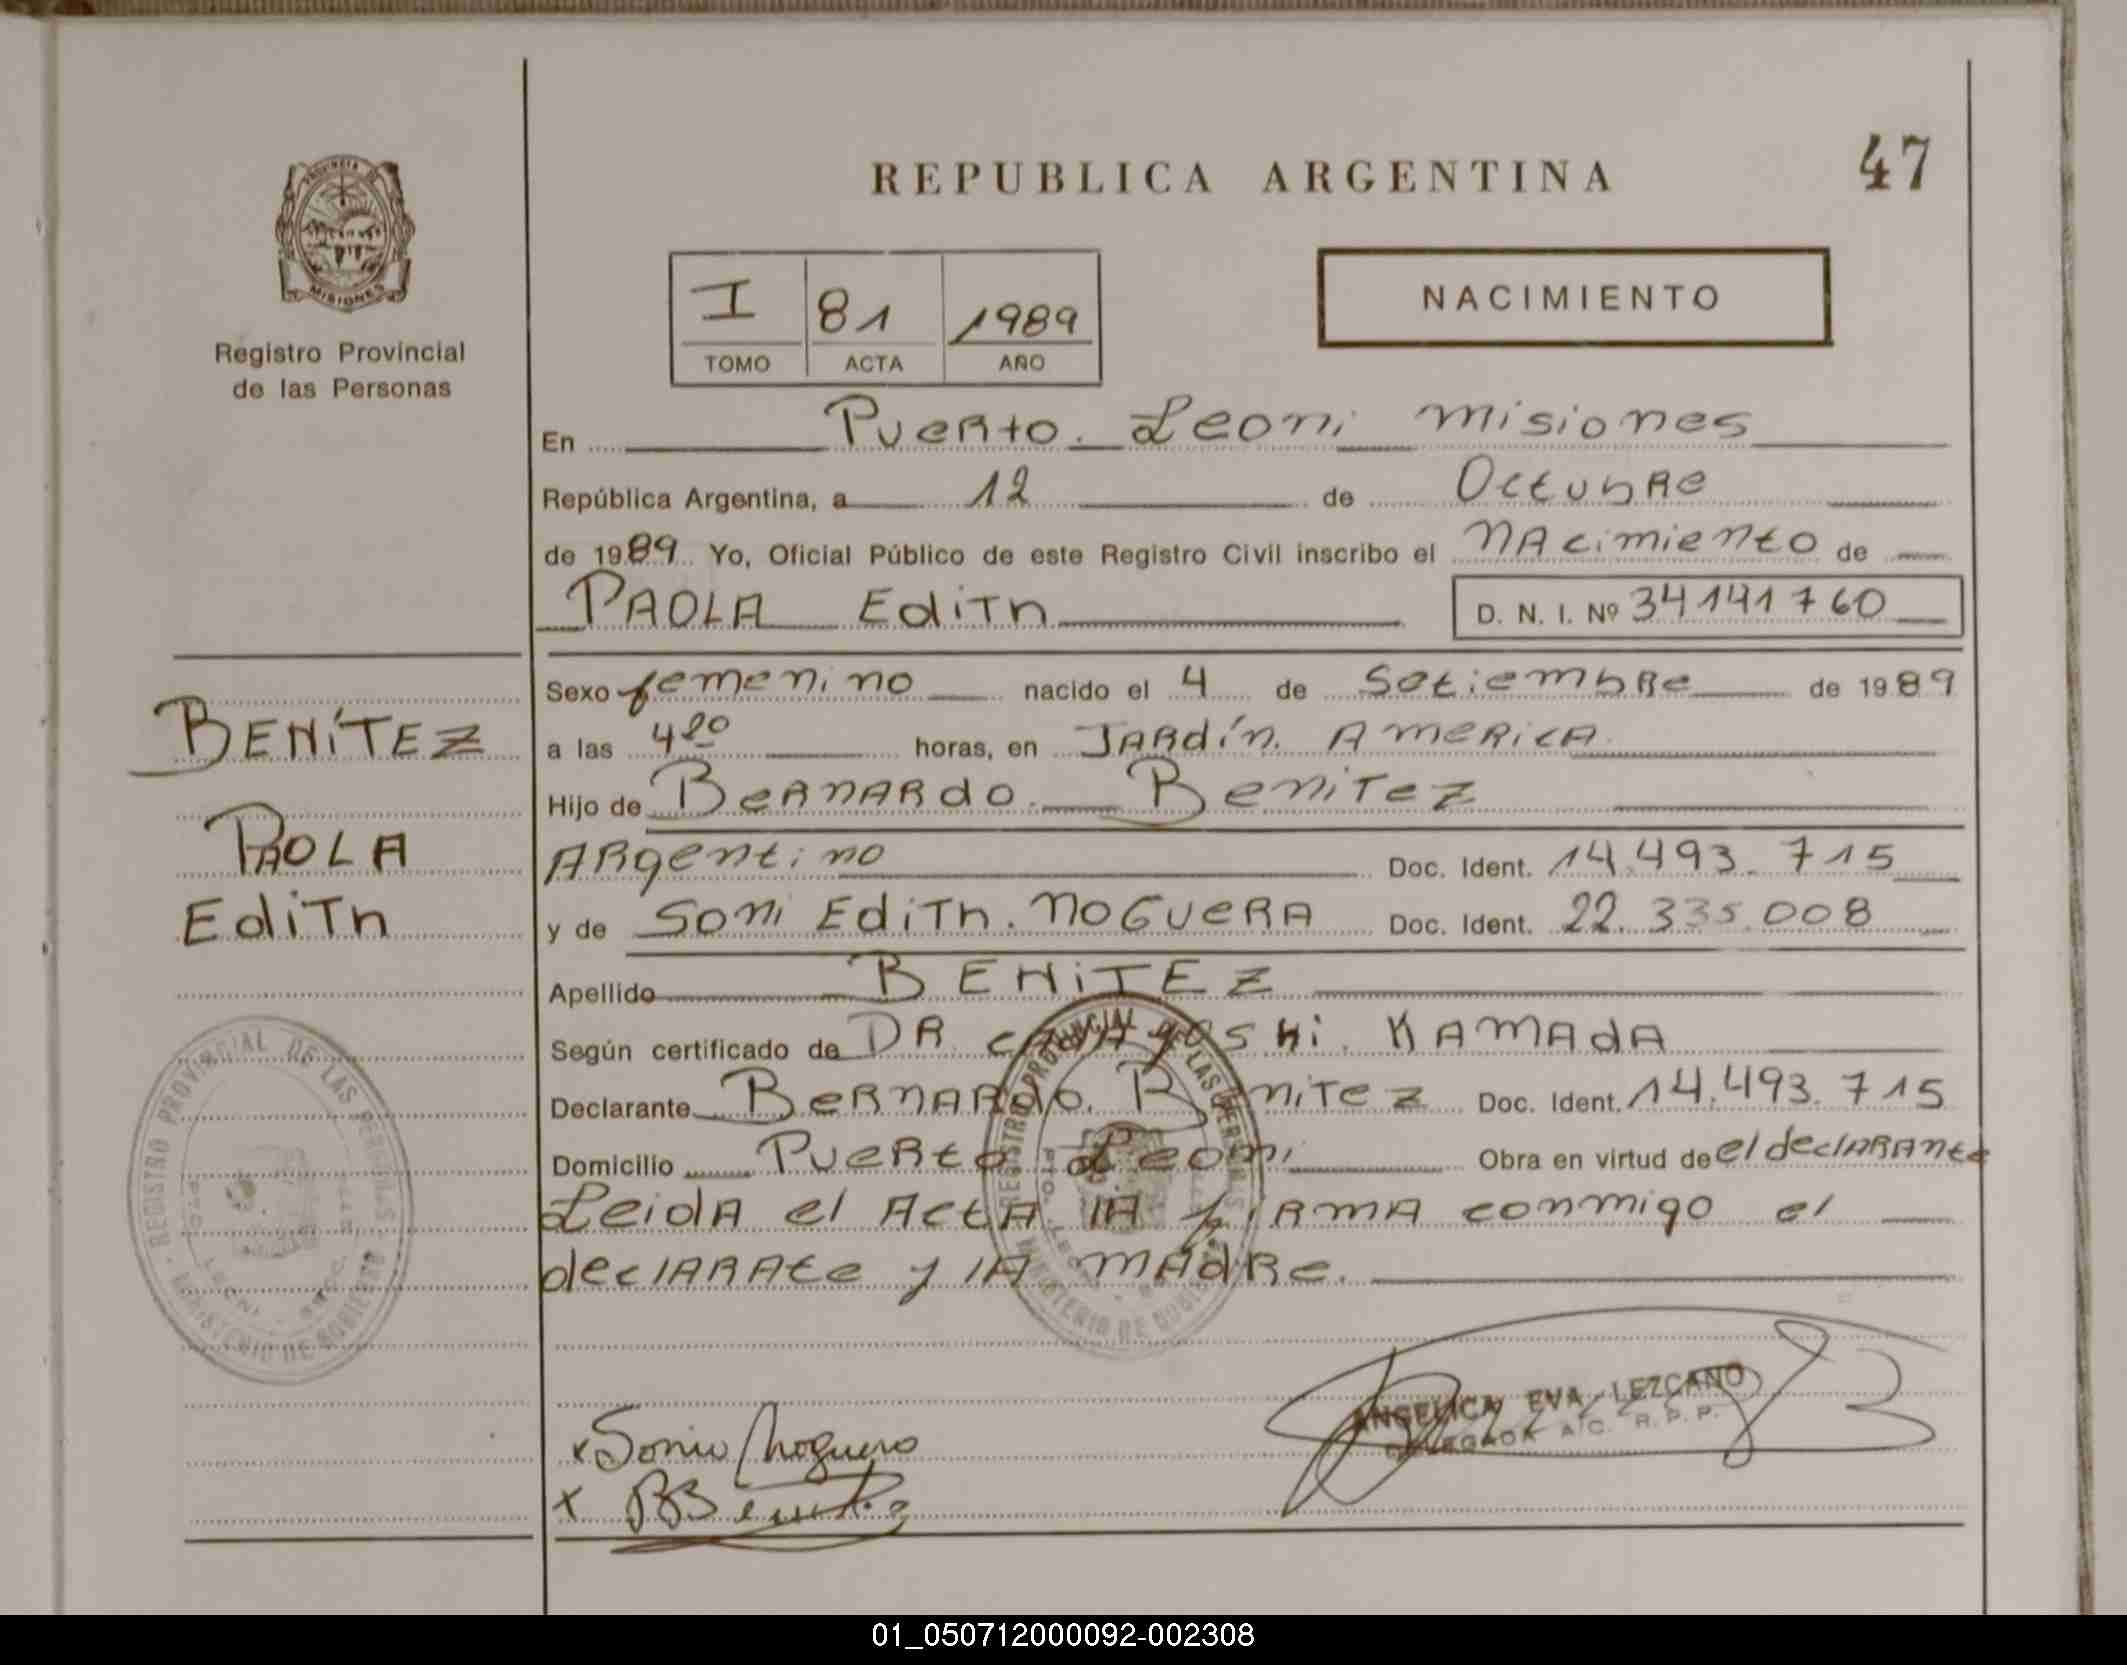 REPUBLICA ARGENTINA
47
PROVINCIA DE
MISIONES
Registro Provincial
de las Personas
I 81 1989
TOMO ACTA AÑO
NACIMIENTO
En Puerto Leoni Misiones
República Argentina, a 12 de Octubre
de 1989 Yo, Oficial Público de este Registro Civil inscribo el nacimiento de
PAOLA Edith
D. N. I. Nº 34141760
BENÍTEZ
PAOLA
Edith
Sexo femenino nacido el 4 de Setiembre de 1989
a las 4 20 horas, en Jardín America
Hijo de Bernardo Benitez
Argentino Doc. Ident. 14.493.715
y de Soni Edith Noguera Doc. Ident. 22.335.008
Apellido BENITEZ
Según certificado de DR Kamada
Declarante Bernardo Benitez Doc. Ident. 14.493.715
Domicilio Puerto Leoni Obra en virtud de el declarante
Leida el Acta la firma conmigo el
declarate y la madre.
REGISTRO PROVINCIAL DE LAS PERSONAS
MINISTERIO DE GOBIERNO
PTO. LEONI
REGISTRO PROVINCIAL DE LAS PERSONAS
MINISTERIO DE GOBIERNO
PTO. LEONI
ANGELICA EVA LEZCANO
DELEGADA A/C. R.P.P.
x Sonia Noguera
x B Benitez
01_050712000092-002308